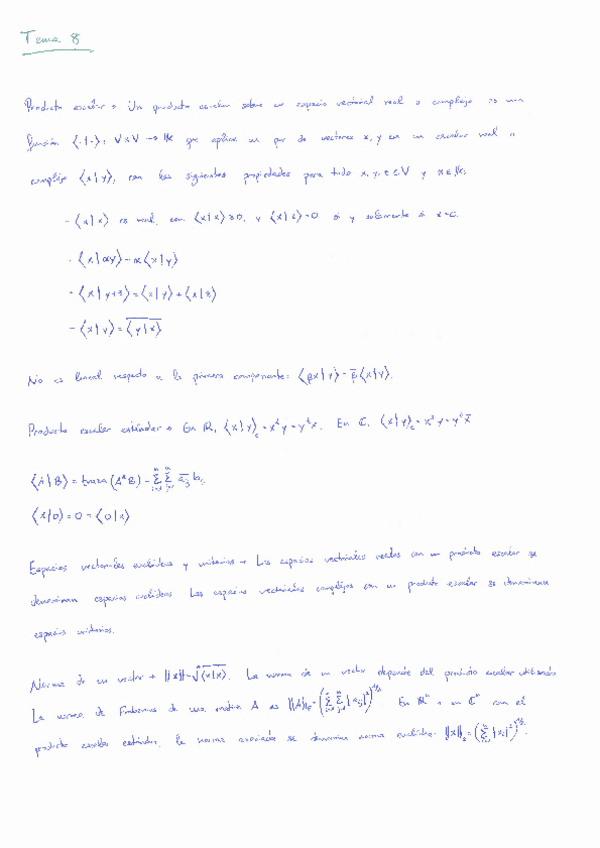 Tema 8
Producto escalar → Un producto escalar sobre un espacio vectorial real o complejo es una
función ⟨·|·⟩: V×V → 𝕂 que aplica un par de vectores x, y en un escalar real o
complejo ⟨x|y⟩, con las siguientes propiedades para todo x, y, z ∈ V y α ∈ 𝕂:
- ⟨x|x⟩ es real, con ⟨x|x⟩ ≥ 0, y ⟨x|x⟩ = 0 si y solamente si x = 0.
- ⟨x|αy⟩ = α⟨x|y⟩
- ⟨x|y+z⟩ = ⟨x|y⟩ + ⟨x|z⟩
- ⟨x|y⟩ = \overline{⟨y|x⟩}
No es lineal respecto a la primera componente: ⟨βx|y⟩ = β̅⟨x|y⟩.
Producto escalar estándar → En ℝ, ⟨x|y⟩ = xᵗy = yᵗx. En ℂ, ⟨x|y⟩ = x*y = yᵗx̅
⟨A|B⟩ = traza(A*B) = Σ Σ a̅ᵢⱼ bᵢⱼ
⟨x|0⟩ = 0 = ⟨0|x⟩
Espacios vectoriales euclídeos y unitarios → Los espacios vectoriales reales con un producto escalar se
denominan espacios euclídeos. Los espacios vectoriales complejos con un producto escalar se denominan
espacios unitarios.
Norma de un vector → ||x|| = √⟨x|x⟩. La norma de un vector depende del producto escalar utilizado.
La norma de Frobenius de una matriz A es ||A||_F = (Σ Σ |aᵢⱼ|²)^{1/2}. En ℝⁿ o en ℂⁿ con el
producto escalar estándar, la norma asociada se denomina norma euclídea: ||x||₂ = (Σ |xᵢ|²)^{1/2}.